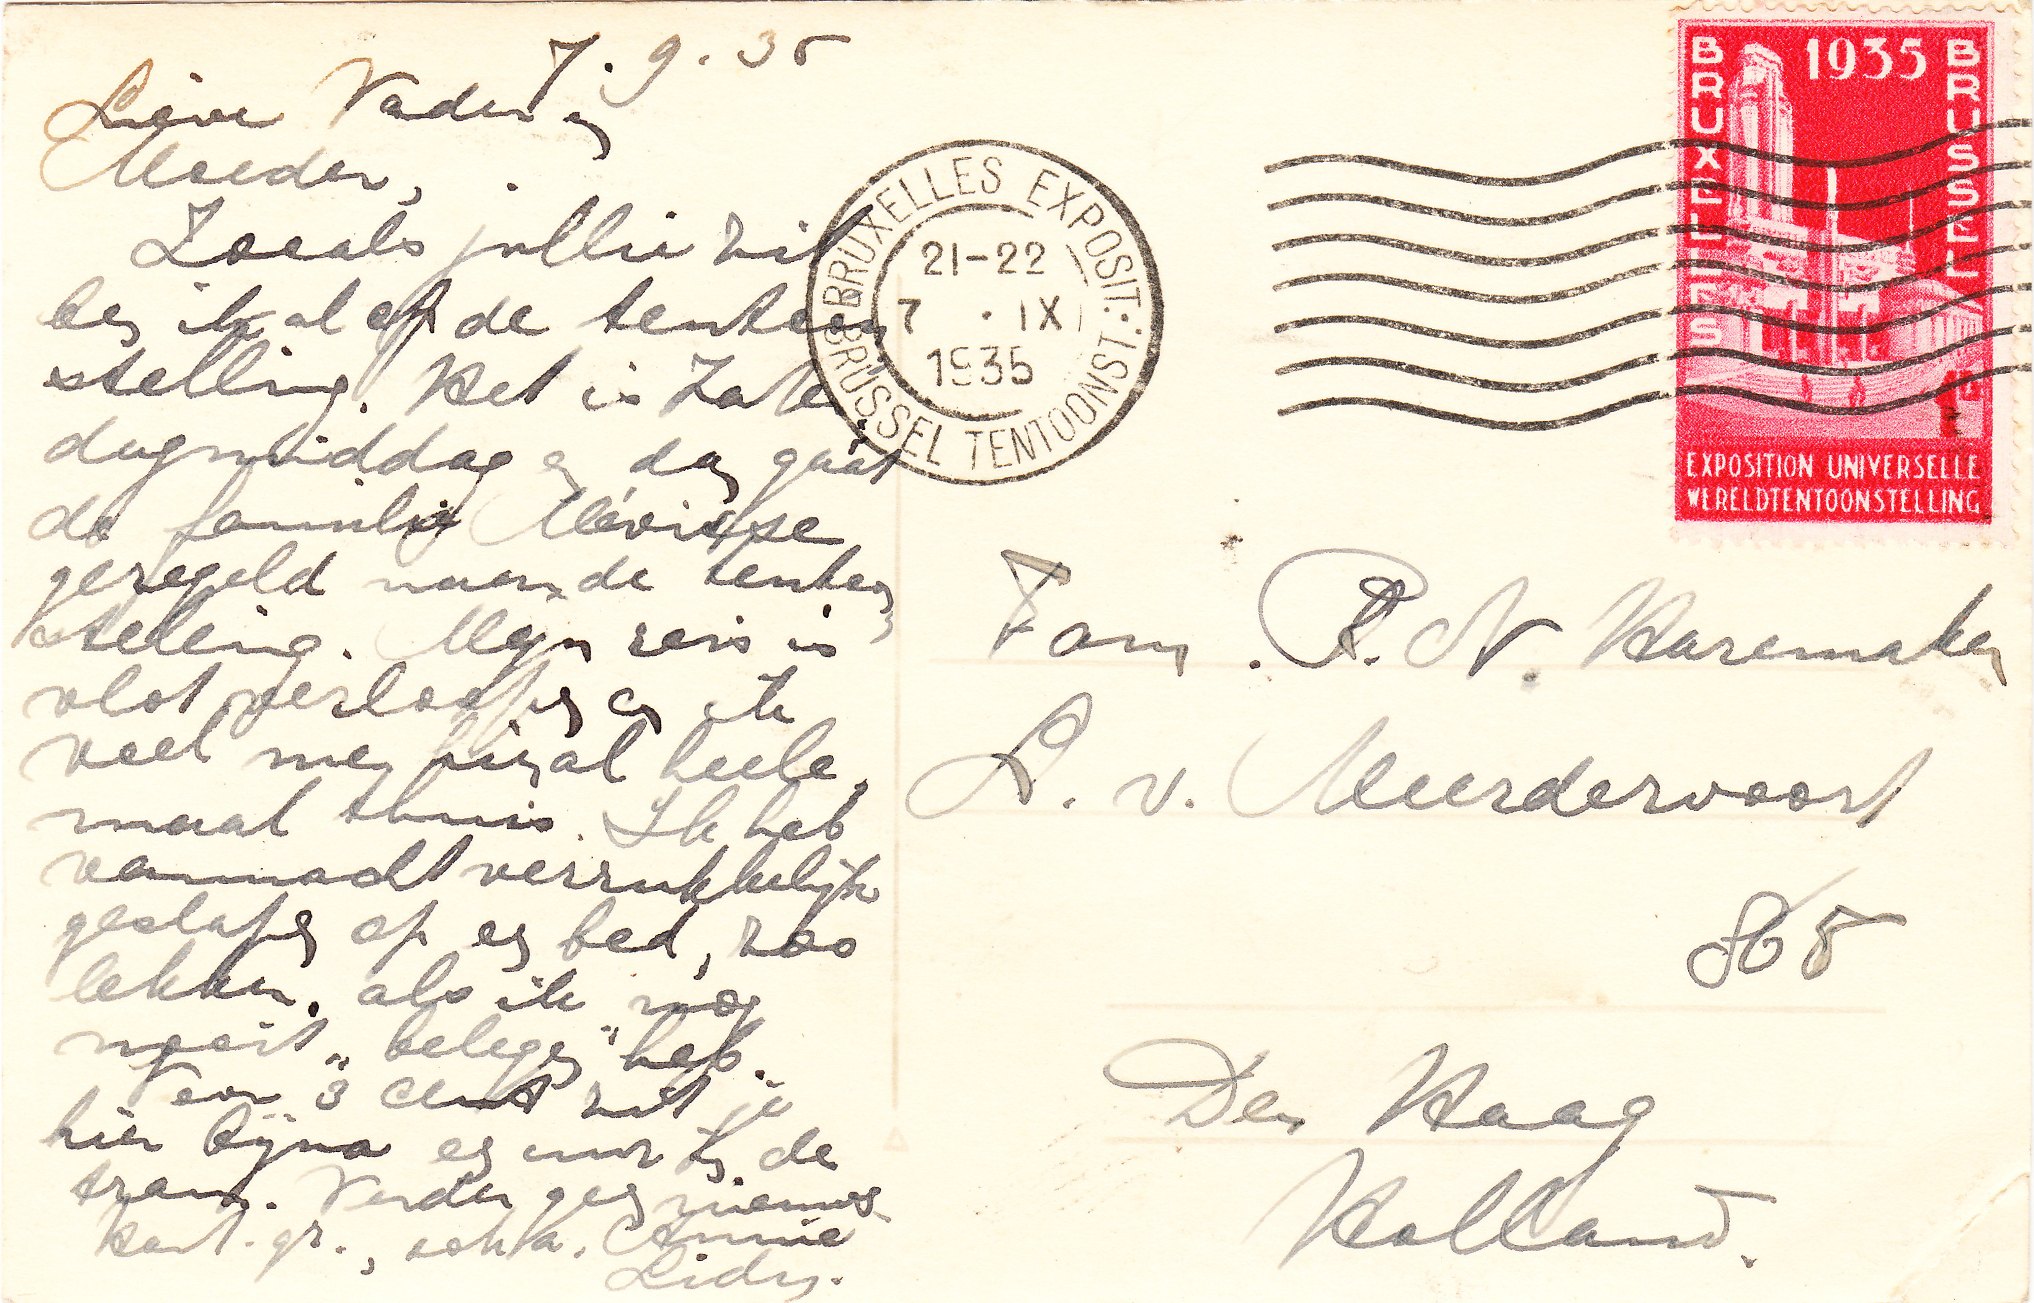 7.9.35
Lieve Vader en
Moeder,
Zooals jullie ziet
ben ik al op de tentoon
stelling. Het is Zater
dagmiddag en dan gaat
de familie Mévisse
geregeld naar de tentoon
stelling. Mijn reis is
vlot verloopen en ik
voel me hier al heele
maal thuis. Ik heb
vannacht verrukkelijk
geslapen op een bed, zoo
lekker, als ik nog
nooit "gelegen" heb.
Voor 3 cent zit je
hier bijna een uur in de
tram. Verder geen nieuws
Hart. gr., ook a. Annie
Lidy.
BRUXELLES EXPOSIT.
21-22
7 · IX
1935
BRUSSEL TENTOONST.
1935
BRUXELLES
BRUSSEL
1F
EXPOSITION UNIVERSELLE
WERELDTENTOONSTELLING
Fam. P. N. Haremaker
L. v. Meerdervoort
865
Den Haag
Holland.